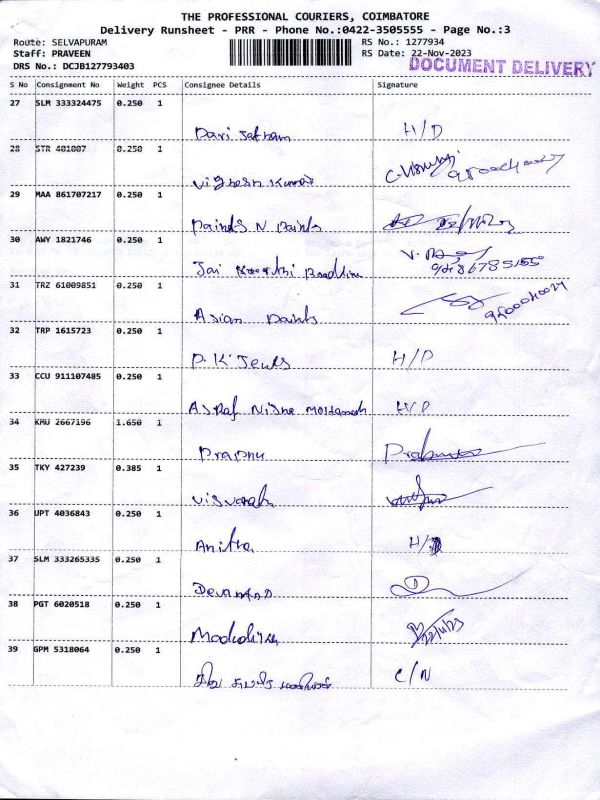 THE PROFESSIONAL COURIERS, COIMBATORE
Delivery Runsheet - PRR - Phone No.:0422-3505555 - Page No.:3
Route: SELVAPURAM RS No.: 1277934
Staff: PRAVEEN RS Date: 22-Nov-2023
DRS No.: DCJB127793403 DOCUMENT DELIVERY
S No Consignment No Weight PCS Consignee Details Signature
27 SLM 333324475 0.250 1
H/D
28 STR 401007 0.250 1
Vignesh Kumar
29 MAA 861707217 0.250 1
Paints N Paints
30 AWY 1821746 0.250 1
Jai
31 TRZ 61009851 0.250 1
Asian Paints
32 TRP 1615723 0.250 1
P.K H/D
33 CCU 911107485 0.250 1
H/D
34 KMU 2667196 1.650 1
Prabhu
35 TKY 427239 0.385 1
36 UPT 4036843 0.250 1
Anitha H/D
37 SLM 333265335 0.250 1
38 PGT 6020518 0.250 1
22/11/23
39 GPM 5318064 0.250 1
C/N